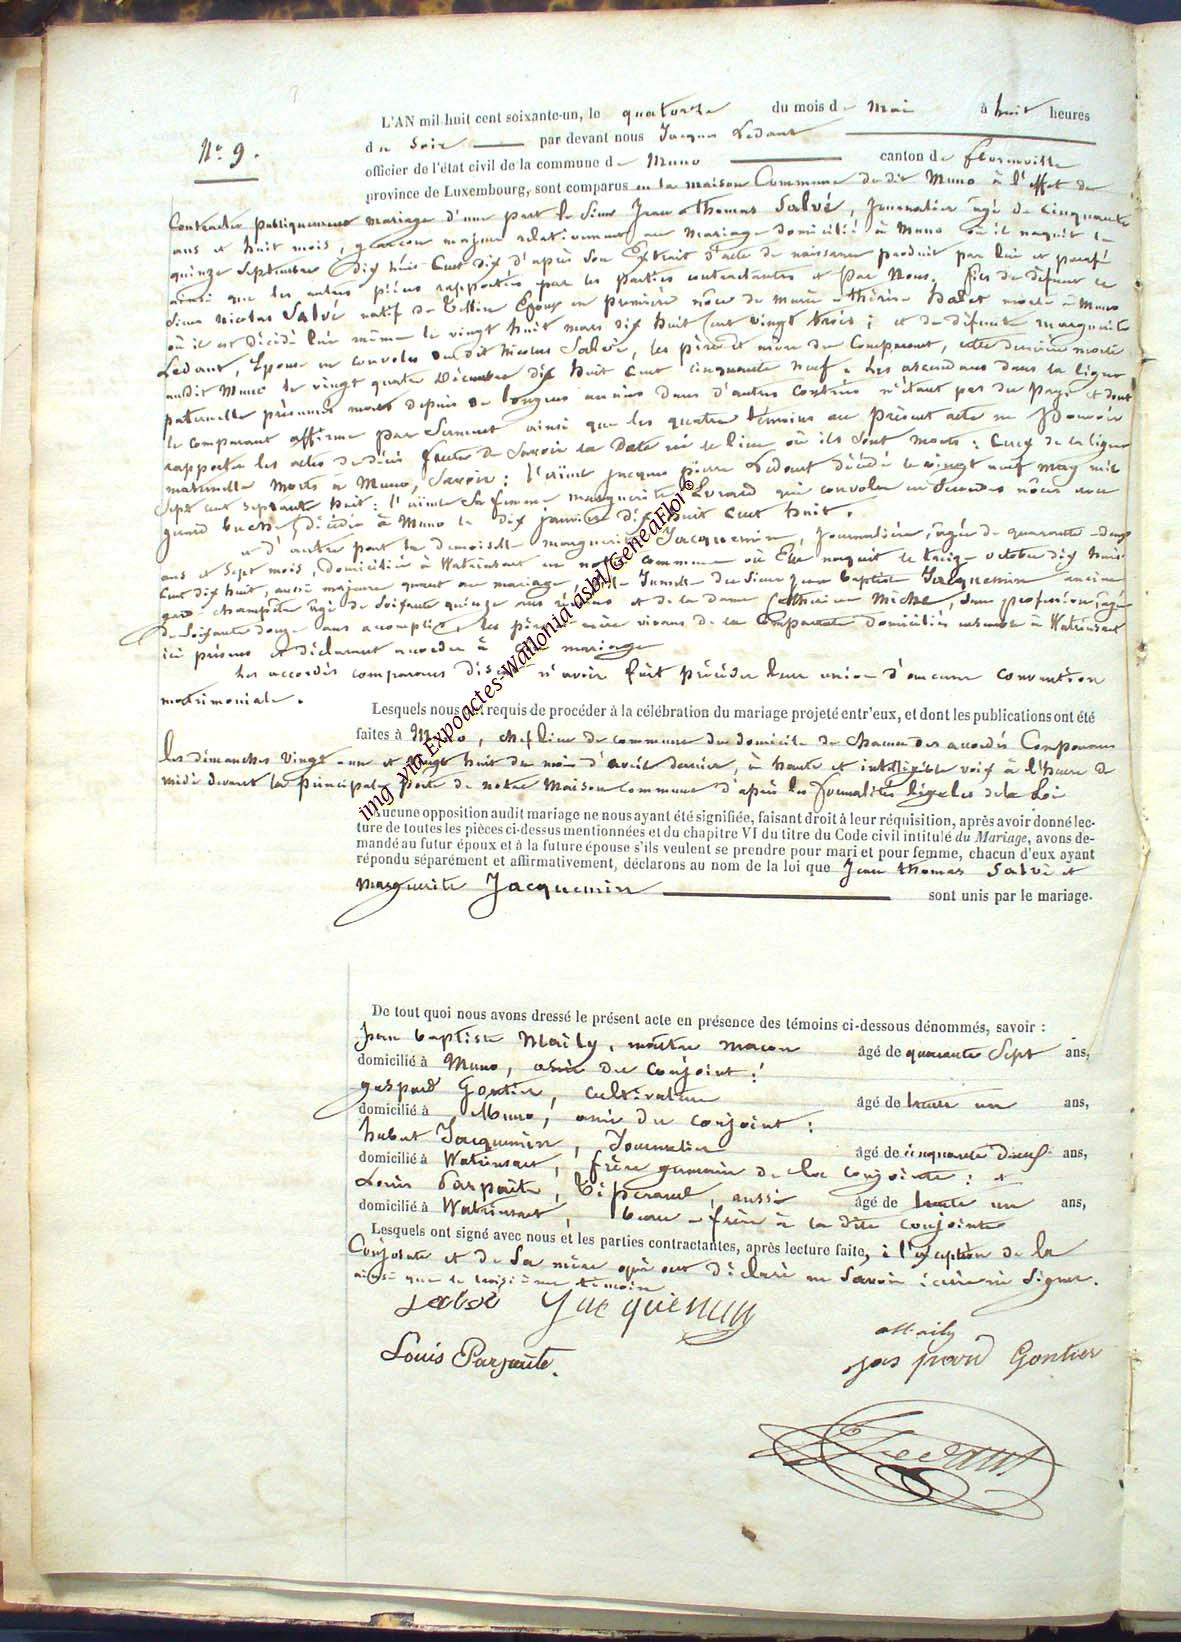 N.o 9.
L'AN mil huit cent soixante-un, le quatorze du mois de Mai à huit heures
du Soir par devant nous Jacques Ledant
officier de l'état civil de la commune de Muno canton de florenville
province de Luxembourg, sont comparus en la maison Commune du dit Muno à l'effet de
Contracter publiquement mariage d'une part le Sieur Jean thomas Salvé, journalier âgé de cinquante
ans et huit mois, garçon majeur relativement au Mariage domicilié à Muno où il naquit le
quinze Septembre dix huit Cent dix d'après son Extrait d'acte de naissance produit par lui et parafé
ainsi que les autres pièces rapportées par les parties contractantes et par Nous, fils du défunt le
Sieur Nicolas Salvé natif de Tellin Epoux en première nôce de Marie thérèse morte à Muno
où il est décédé lui même le vingt huit mars dix huit Cent vingt trois ; et de défunte marguerite
Ledant, Epouse en convoles du dit Nicolas Salvé, les père et mère du Comparant, cette dernière morte
audit Muno le vingt quatre Décembre dix huit Cent cinquante neuf. Les ascendans dans la ligne
paternelle présumés morts depuis de longues années dans d'autres contrées n'étant pas du Pays et dont
le comparant affirme par Serment ainsi que les quatre témoins au présent acte ne pouvoir
rapporter les actes de décès faute de Savoir la Date ni le lieu où ils sont morts : Ceux de la ligne
maternelle morts à Muno, Savoir : l'aïeul jacques pierre Ledant décédé le vingt neuf may mil
Sept cent septante huit : l'aïeule Sa femme marguerite Evrard qui convola en Secondes nôces avec
décédée à Muno le dix janvier dix huit Cent huit.
et d'autre part la demoiselle marguerite Jacquemin, journalière, âgée de quarante deux
ans et Sept mois, domiciliée à Watrinsart en notre commune où Elle naquit le treize octobre dix huit
Cent dix huit, aussi majeure quant au mariage, fille du Sieur jean baptiste Jacquemin ancien
garde champêtre âgé de Soixante quinze ans et de la dame Catherine Miche, Sans profession âgée
de Soixante douze ans accomplis, les père et mère vivans de la Comparante domiciliés ensemble à Watrinsart
ici présens et déclarant accéder à mariage
Les accordés comparans disent n'avoir fait précéder leur union d'aucune convention
matrimoniale.
Lesquels nous ont requis de procéder à la célébration du mariage projeté entr'eux, et dont les publications ont été
faites à Muno, chef lieu de commune du domicile de chacun des accordés Comparans
les dimanches vingt-une et vingt huit du mois d'avril dernier, à haute et intelligible voix à l'heure de
midi devant la principale porte de notre Maison commune d'après les formalités légales de la Loi
Aucune opposition audit mariage ne nous ayant été signifiée, faisant droit à leur réquisition, après avoir donné lec-
ture de toutes les pièces ci-dessus mentionnées et du chapitre VI du titre du Code civil intitulé du Mariage, avons de-
mandé au futur époux et à la future épouse s'ils veulent se prendre pour mari et pour femme, chacun d'eux ayant
répondu séparément et affirmativement, déclarons au nom de la loi que Jean thomas Salvé et
Marguerite Jacquemin sont unis par le mariage.
De tout quoi nous avons dressé le présent acte en présence des témoins ci-dessous dénommés, savoir :
jean baptiste Maily, maître maçon âgé de quarante Sept ans,
domicilié à Muno, ami du conjoint :
gaspard Gontier, cultivateur âgé de trente un ans,
domicilié à Muno, ami du conjoint :
hubert Jacquemin, Journalier âgé de cinquante ans,
domicilié à Watrinsart, frère germain de la conjointe : et
Louis Parpaite, aussi âgé de trente un ans,
domicilié à Watrinsart, beau-frère à la dite conjointe
Lesquels ont signé avec nous et les parties contractantes, après lecture faite, à l'exception de la
Conjointe et de Sa mère qui ont déclaré ne Savoir écrire ni Signer.
ainsi que le troisième témoin
Salvé Jacquemin
Maily
Louis Parpaite.
gaspard Gontier
J Ledant
img via Expoactes-Wallonia asbl/GeneaFlo!©